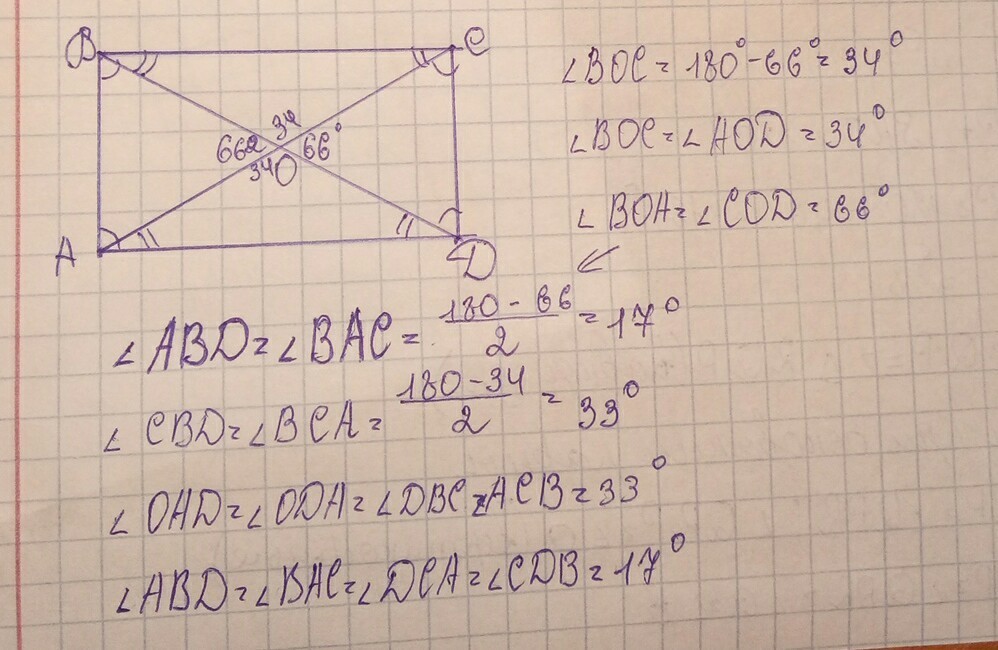 B
C
34
66
66°
34
O
A
D
∠BOC = 180° - 66° = 34°
∠BOC = ∠AOD = 34°
∠BOA = ∠COD = 66°
∠ABD = ∠BAC = (180 - 66)/2 = 17°
∠CBD = ∠BCA = (180 - 34)/2 = 33°
∠OAD = ∠ODA = ∠DBC = ∠ACB = 33°
∠ABD = ∠BAC = ∠DCA = ∠CDB = 17°